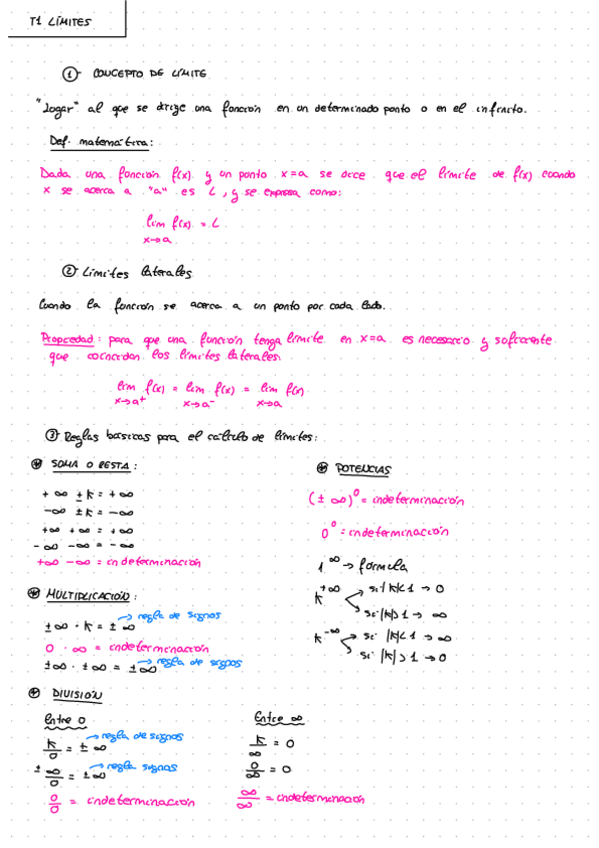 T1 LÍMITES
① CONCEPTO DE LÍMITE
"Lugar" al que se dirige una función en un determinado punto o en el infinito.
Def. matemática:
Dada una función f(x) y un punto x=a se dice que el límite de f(x) cuando
x se acerca a "a" es L, y se expresa como:
lim f(x) = L
x→a
② Límites laterales
Cuando la función se acerca a un punto por cada lado.
Propiedad: para que una función tenga límite en x=a es necesario y suficiente
que coincidan los límites laterales.
lim f(x) = lim f(x) = lim f(x)
x→a⁺ x→a⁻ x→a
③ Reglas básicas para el cálculo de límites:
⊛ SUMA O RESTA:
+∞ ± k = +∞
-∞ ± k = -∞
+∞ +∞ = +∞
-∞ -∞ = -∞
+∞ -∞ = indeterminación
⊛ MULTIPLICACIÓN:
±∞ · k = ±∞ → regla de signos
0 · ∞ = indeterminación
±∞ · ±∞ = ±∞ → regla de signos
⊛ POTENCIAS
(±∞)⁰ = indeterminación
0⁰ = indeterminación
1^∞ → fórmula
k^+∞ si |k|<1 → 0
si |k|>1 → ∞
k^-∞ si |k|<1 → ∞
si |k|>1 → 0
⊛ DIVISIÓN
Entre 0
k/0 = ±∞ → regla de signos
±∞/0 = ±∞ → regla signos
0/0 = indeterminación
Entre ∞
k/∞ = 0
0/∞ = 0
∞/∞ = indeterminación